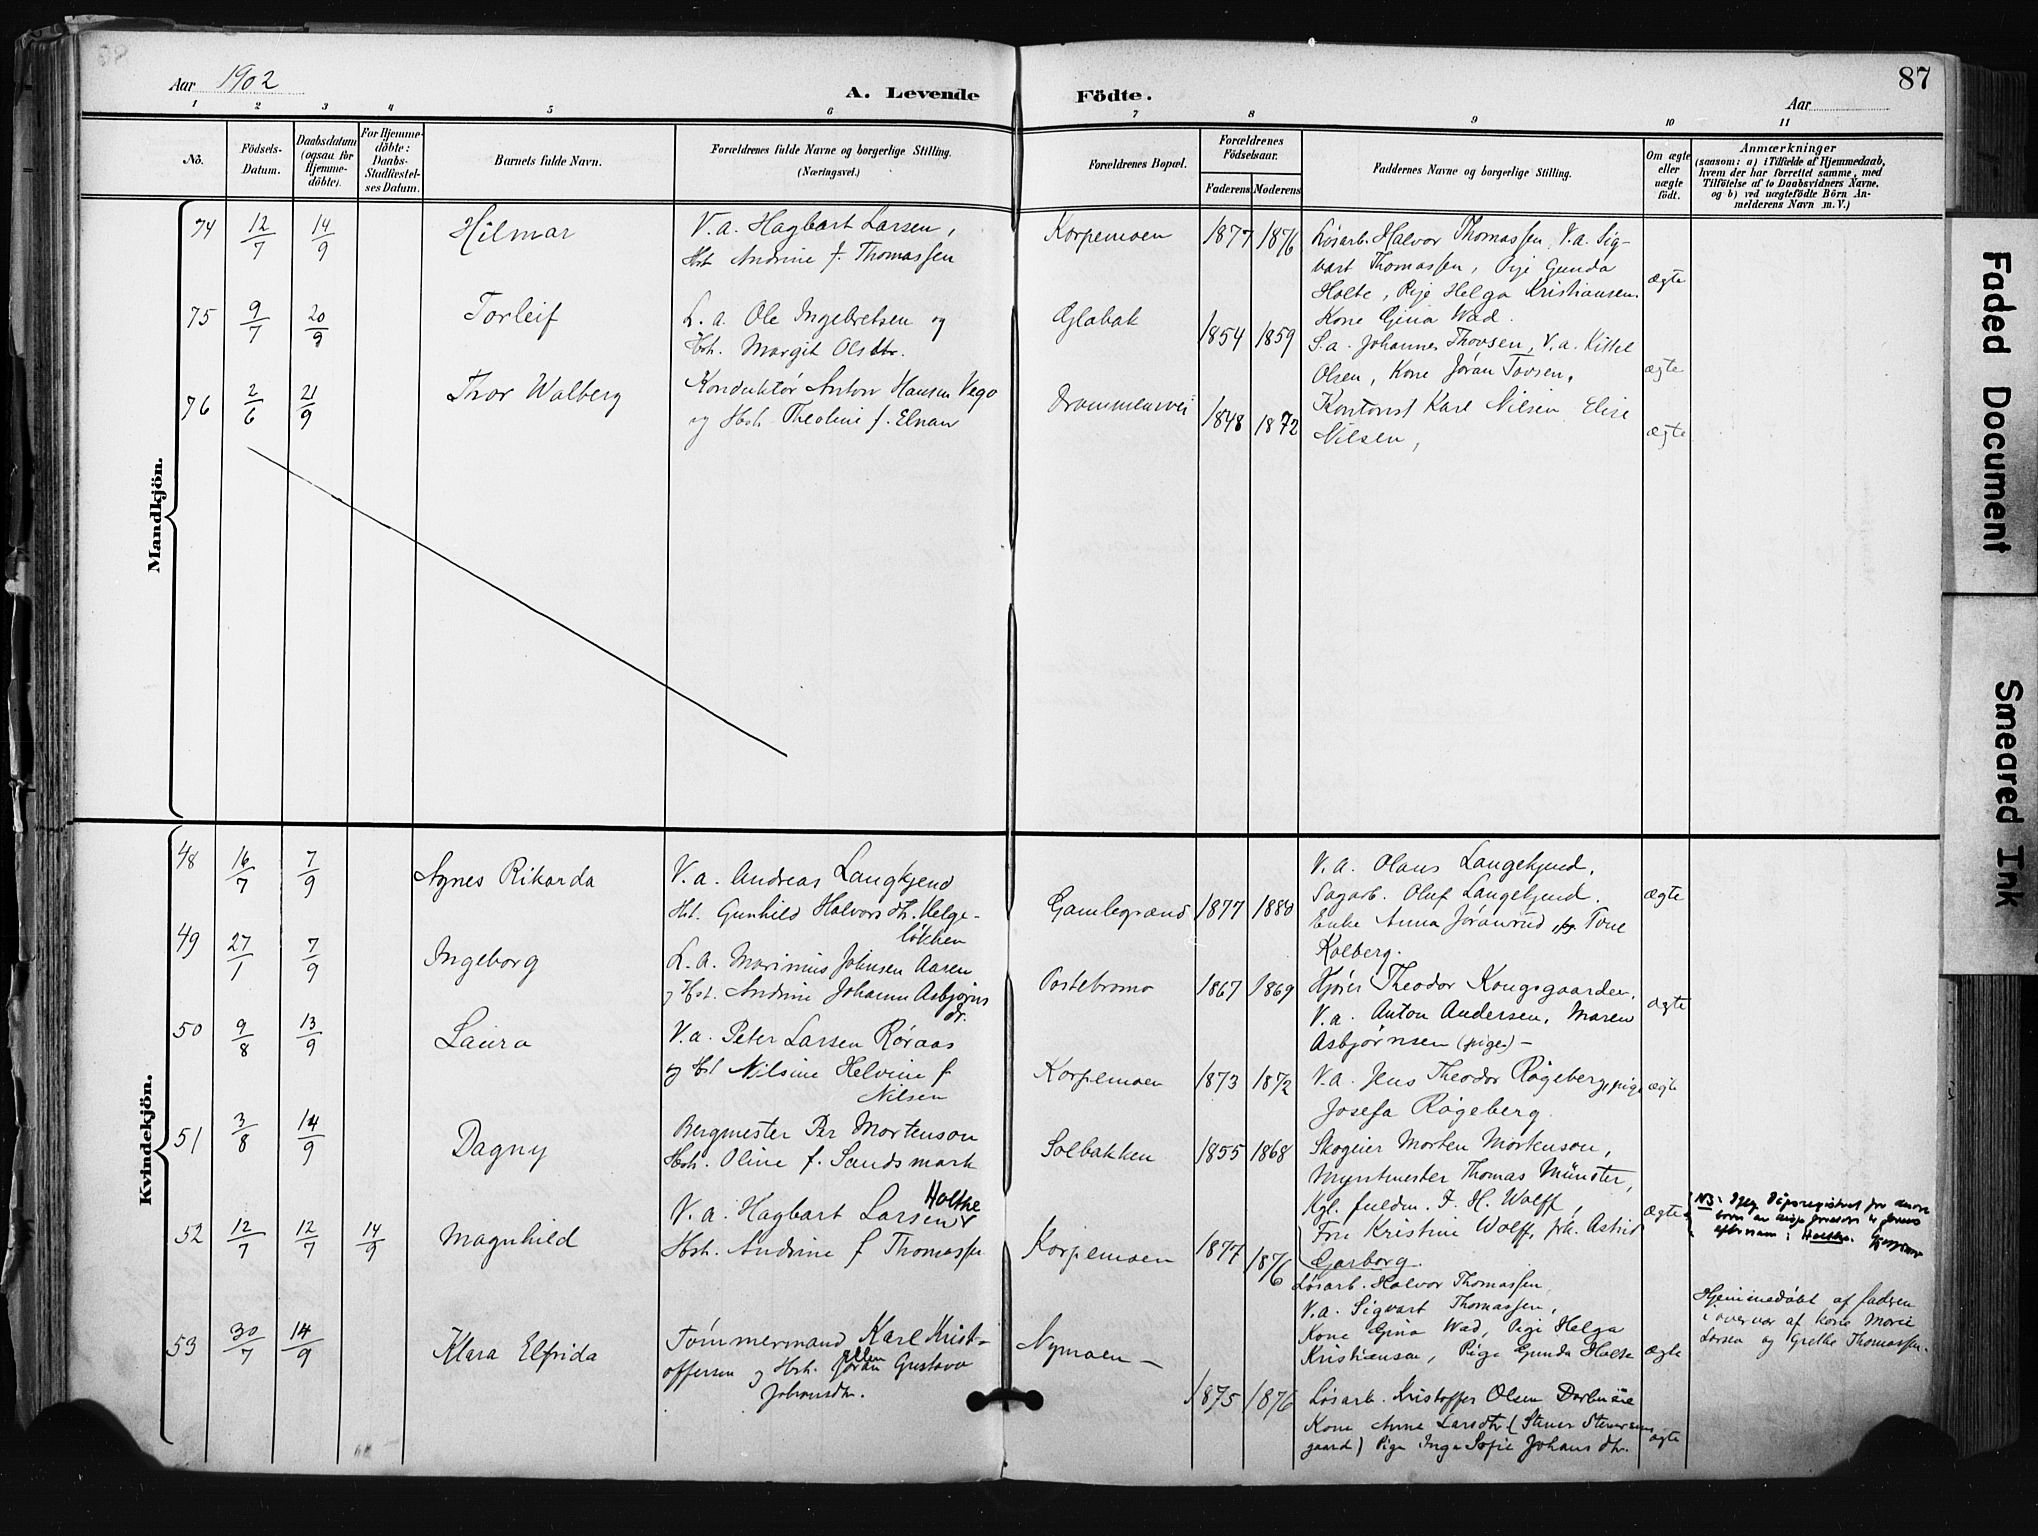 Aar 1902
A. Levende Födte.
87
Aar
1 2 3 4 5 6 7 8 9 10 11
Nö.
Födsels-Datum.
Daabsdatum (ogsaa for Hjemme-döbte).
For Hjemme-döbte: Daabs-Stadfæstel-ses Datum.
Barnets fulde Navn.
Forældrenes fulde Navne og borgerlige Stilling. (Næringsvei.)
Forældrenes Bopæl.
Forældrenes Födselsaar.
Faderens Moderens
Faddernes Navne og borgerlige Stilling.
Om ægte eller uægte födt.
Anmærkninger
(saasom: a) i Tilfælde af Hjemmedaab,
hvem der har forrettet samme, med
Tilföielse af to Daabsvidners Navne,
og b) ved uægtefödte Börn An-
melderens Navn m. V.)
Mandkjön.
74 12/7 14/9 Hilmar
V. a. Hagbart Larsen,
Hst. Andrine f. Thomassen
Korpemoen 1877 1876
Løsarb. Halvor Thomassen, V. a. Sig-
vart Thomassen, Pige Gunda
Holte, Pige Helga Kristiansen.
Kone Gina Wad.
ægte
75 9/7 20/9 Torleif
L. a. Ole Ingebretsen og
Hst. Margit Olsdtr.
Glabak 1854 1859
S. a. Johannes Thovsen, V. a. Kittel
Olsen, Kone Jøran Tovsen.
ægte
76 2/6 21/9 Thor Walberg
Konduktør Anton Hansen Vego
og Hst. Theoline f. Elnan
Drammensvei 1848 1872
Kontorist Karl Nilsen Elise
Nilsen,
ægte
Kvindekjön.
48 16/7 7/9 Agnes Rikarda
V. a. Andreas Langkjend
Hst. Gunhild Halvorsdtr. Helge-
løkken
Gamlegrænd 1877 1880
V. a. Olaus Langekjend,
Sagarb. Oluf Langekjend.
Enke Anna Jøranrud, Tone
Kolberg.
ægte
49 27/1 7/9 Ingeborg
L. a. Marinius Johnsen Aasen
og Hst. Andrine Johanne Asbjørns
dr.
Postebromo 1867 1869
Theodor Kongsgaarden,
V. a. Anton Andersen, Maren
Asbjørnsen (pige) –
ægte
50 9/8 13/9 Laura
V. a. Peter Larsen Røraas
og Hst Nilsine Helvine f
Nilsen
Korpemoen 1873 1872
V. a. Jens Theodor Røgeberg, pige
Josefa Røgeberg.
ægte
51 3/8 14/9 Dagny
Bergmester Per Mortenson
Hst. Oline f. Sandsmark
Solbakken 1855 1868
Skogeier Morten Mortenson,
Myntmester Thomas Münster,
Kgl. fuldm. F. H. Wolff,
Fru Kristine Wolff, frk. Astrid
Garborg.
ægte
52 12/7 12/7 14/9 Magnhild
Holthe
V. a. Hagbart Larsen
Hst. Andrine f Thomassen
Korpemoen 1877 1876
Løsarb. Halvor Thomassen,
V. a. Sigvart Thomassen,
Kone Gina Wad, Pige Helga
Kristiansen, Pige Gunda Holte
ægte
NB:
Holthe.
Hjemmedøbt af faderen
i overvær af Kone Marie
Larsen og Grethe Thomassen.
53 30/7 14/9 Klara Elfrida
Tømmermand Karl Krist-
offersen og Hst. Jøran Gustava
Ellen
Johansdtr.
Nymoen – 1875 1876
Løsarb. Kristoffer Olsen
Kone Anne Larsdtr
gaard) Pige Inga Sofie Johansdtr.
ægte
Faded Document
Smeared Ink